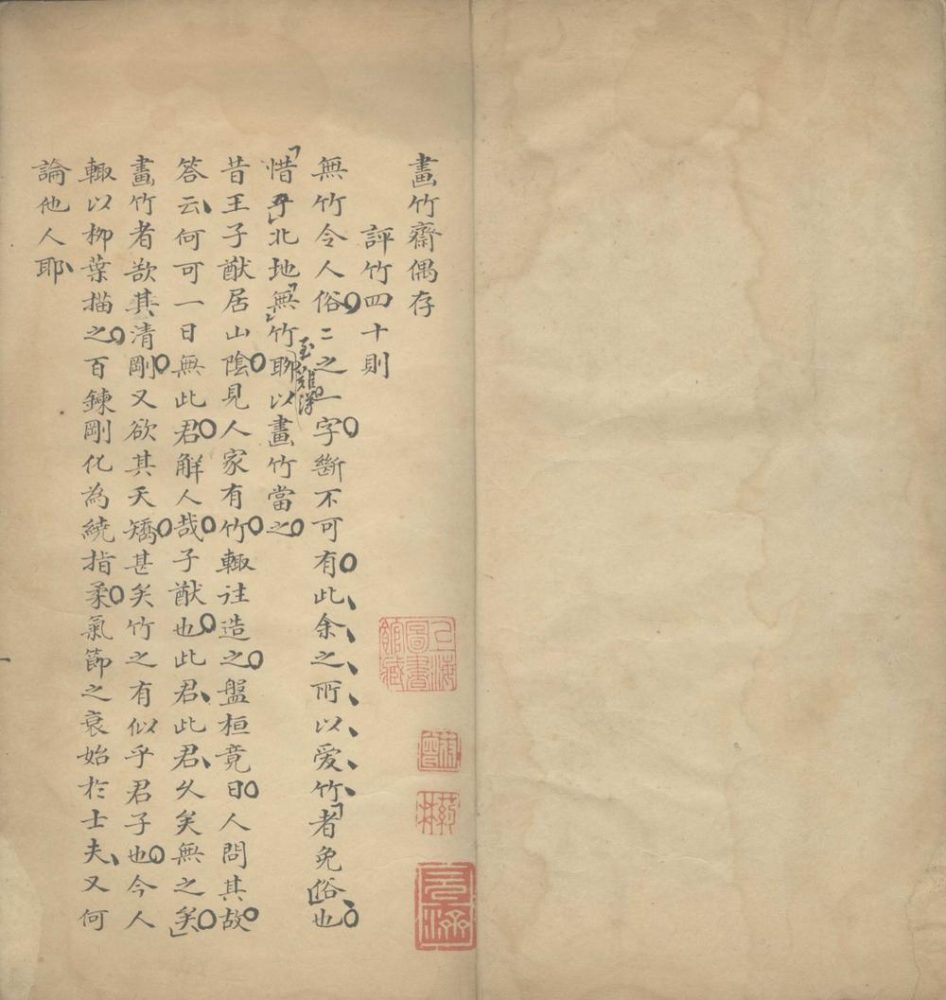 畫竹齋偶存
評竹四十則
無竹令人俗〻之一字斷不可有此余之所以爱竹者免俗也
惜乎北地無竹聊以畫竹當之
昔王子猷居山陰見人家有竹輙往造之盤桓竟日人問其故
答云何可一日無此君解人哉子猷也此君此君久矣無之矣
畫竹者欲其清剛又欲其夭矯甚矣竹之有似乎君子也今人
輙以柳葉描之百鍊剛化為繞指柔氣節之衰始於士夫又何
論他人耶
上海圖書館藏